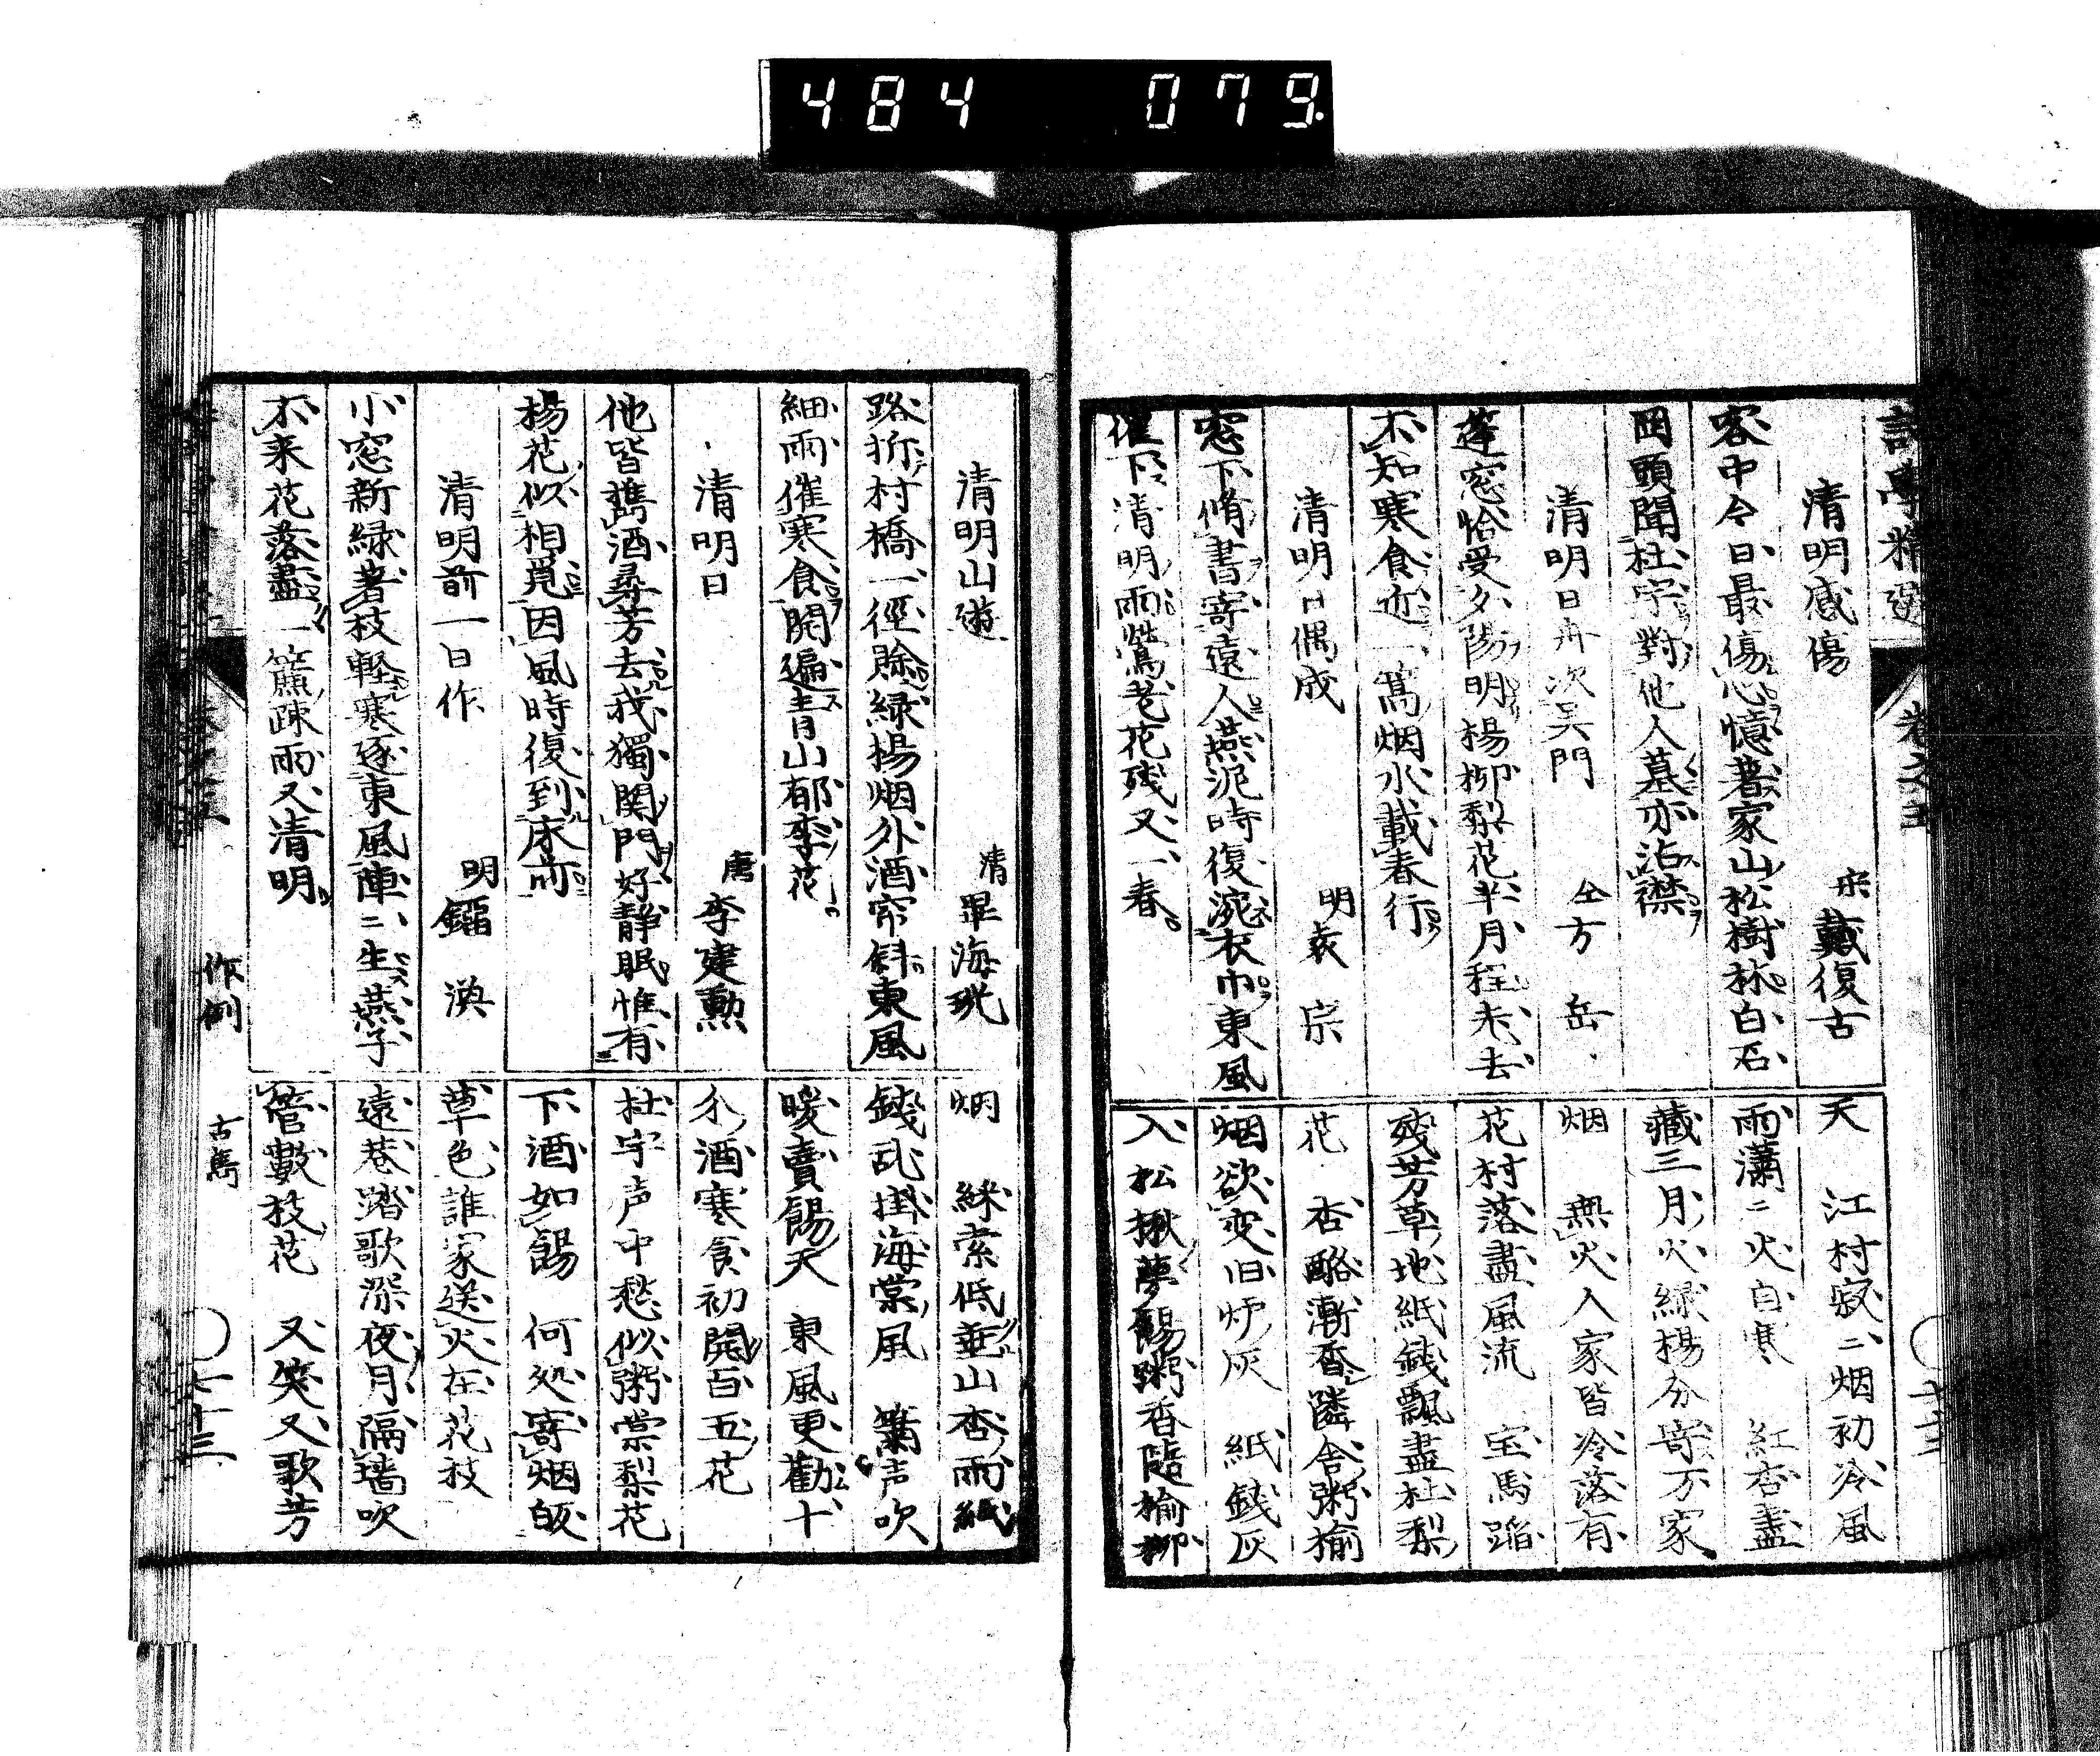 484 079
詩學精選 卷之五
清明感傷 宋 戴復古
客中今日最傷心憶著家山松樹林白石
岡頭聞杜宇對他人墓亦沾襟
清明日舟次吴門 仝 方岳
蓬窓恰受夕陽明楊柳梨花半月程未去
不知寒食近一篙烟水載春行
清明日偶成 明 袁宗
窓下脩書寄遠人燕泥時復涴衣巾東風
催下清明雨鶯老花残又一春
天 江村寂二烟初冷風
雨瀟二火自寒 紅杏盡
藏三月火緑楊分寄万家
烟 無火人家皆冷落有
花村落盡風流 宝馬踏
残芳草地紙銭飄盡杜梨
花 杏酪漸香隣舎粥榆
烟欲変旧炉灰 紙銭灰
入松楸夢餳粥香隨榆柳
清明山遊 清 畢海珖
路折村橋一徑賒緑楊烟外酒帘斜東風
細雨催寒食開遍青山郁李花
清明日 唐 李建勲
他皆攜酒尋芳去我獨関門好静眠惟有
楊花似相覓因風時復到床前
清明前一日作 明 鎦渙
小窓新緑著枝軽寒逐東風陣二生燕子
不来花落盡一簾疎雨又清明
烟 綵索低垂山杏雨紙
銭乱掛海棠風 簫声吹
暖賣餳天 東風更勸十
分酒寒食初開百五花
杜宇声中愁似粥棠梨花
下酒如餳 何処寄烟皈
草色誰家送火在花枝
遠巷踏歌深夜月隔墙吹
管數枝花 又笑又歌芳
作例 古雋 十三